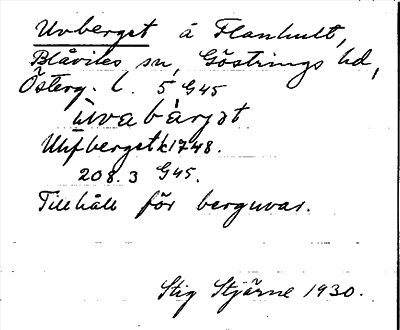 Uvberget å Flanhult,
Blåviks sn, Göstrings hd,
Österg. l. 5 G45
ùvabárjət
Ulfberget k 1748.
208.3 G45.
Tillhåll för berguvar.
Stig Stjärne 1930.